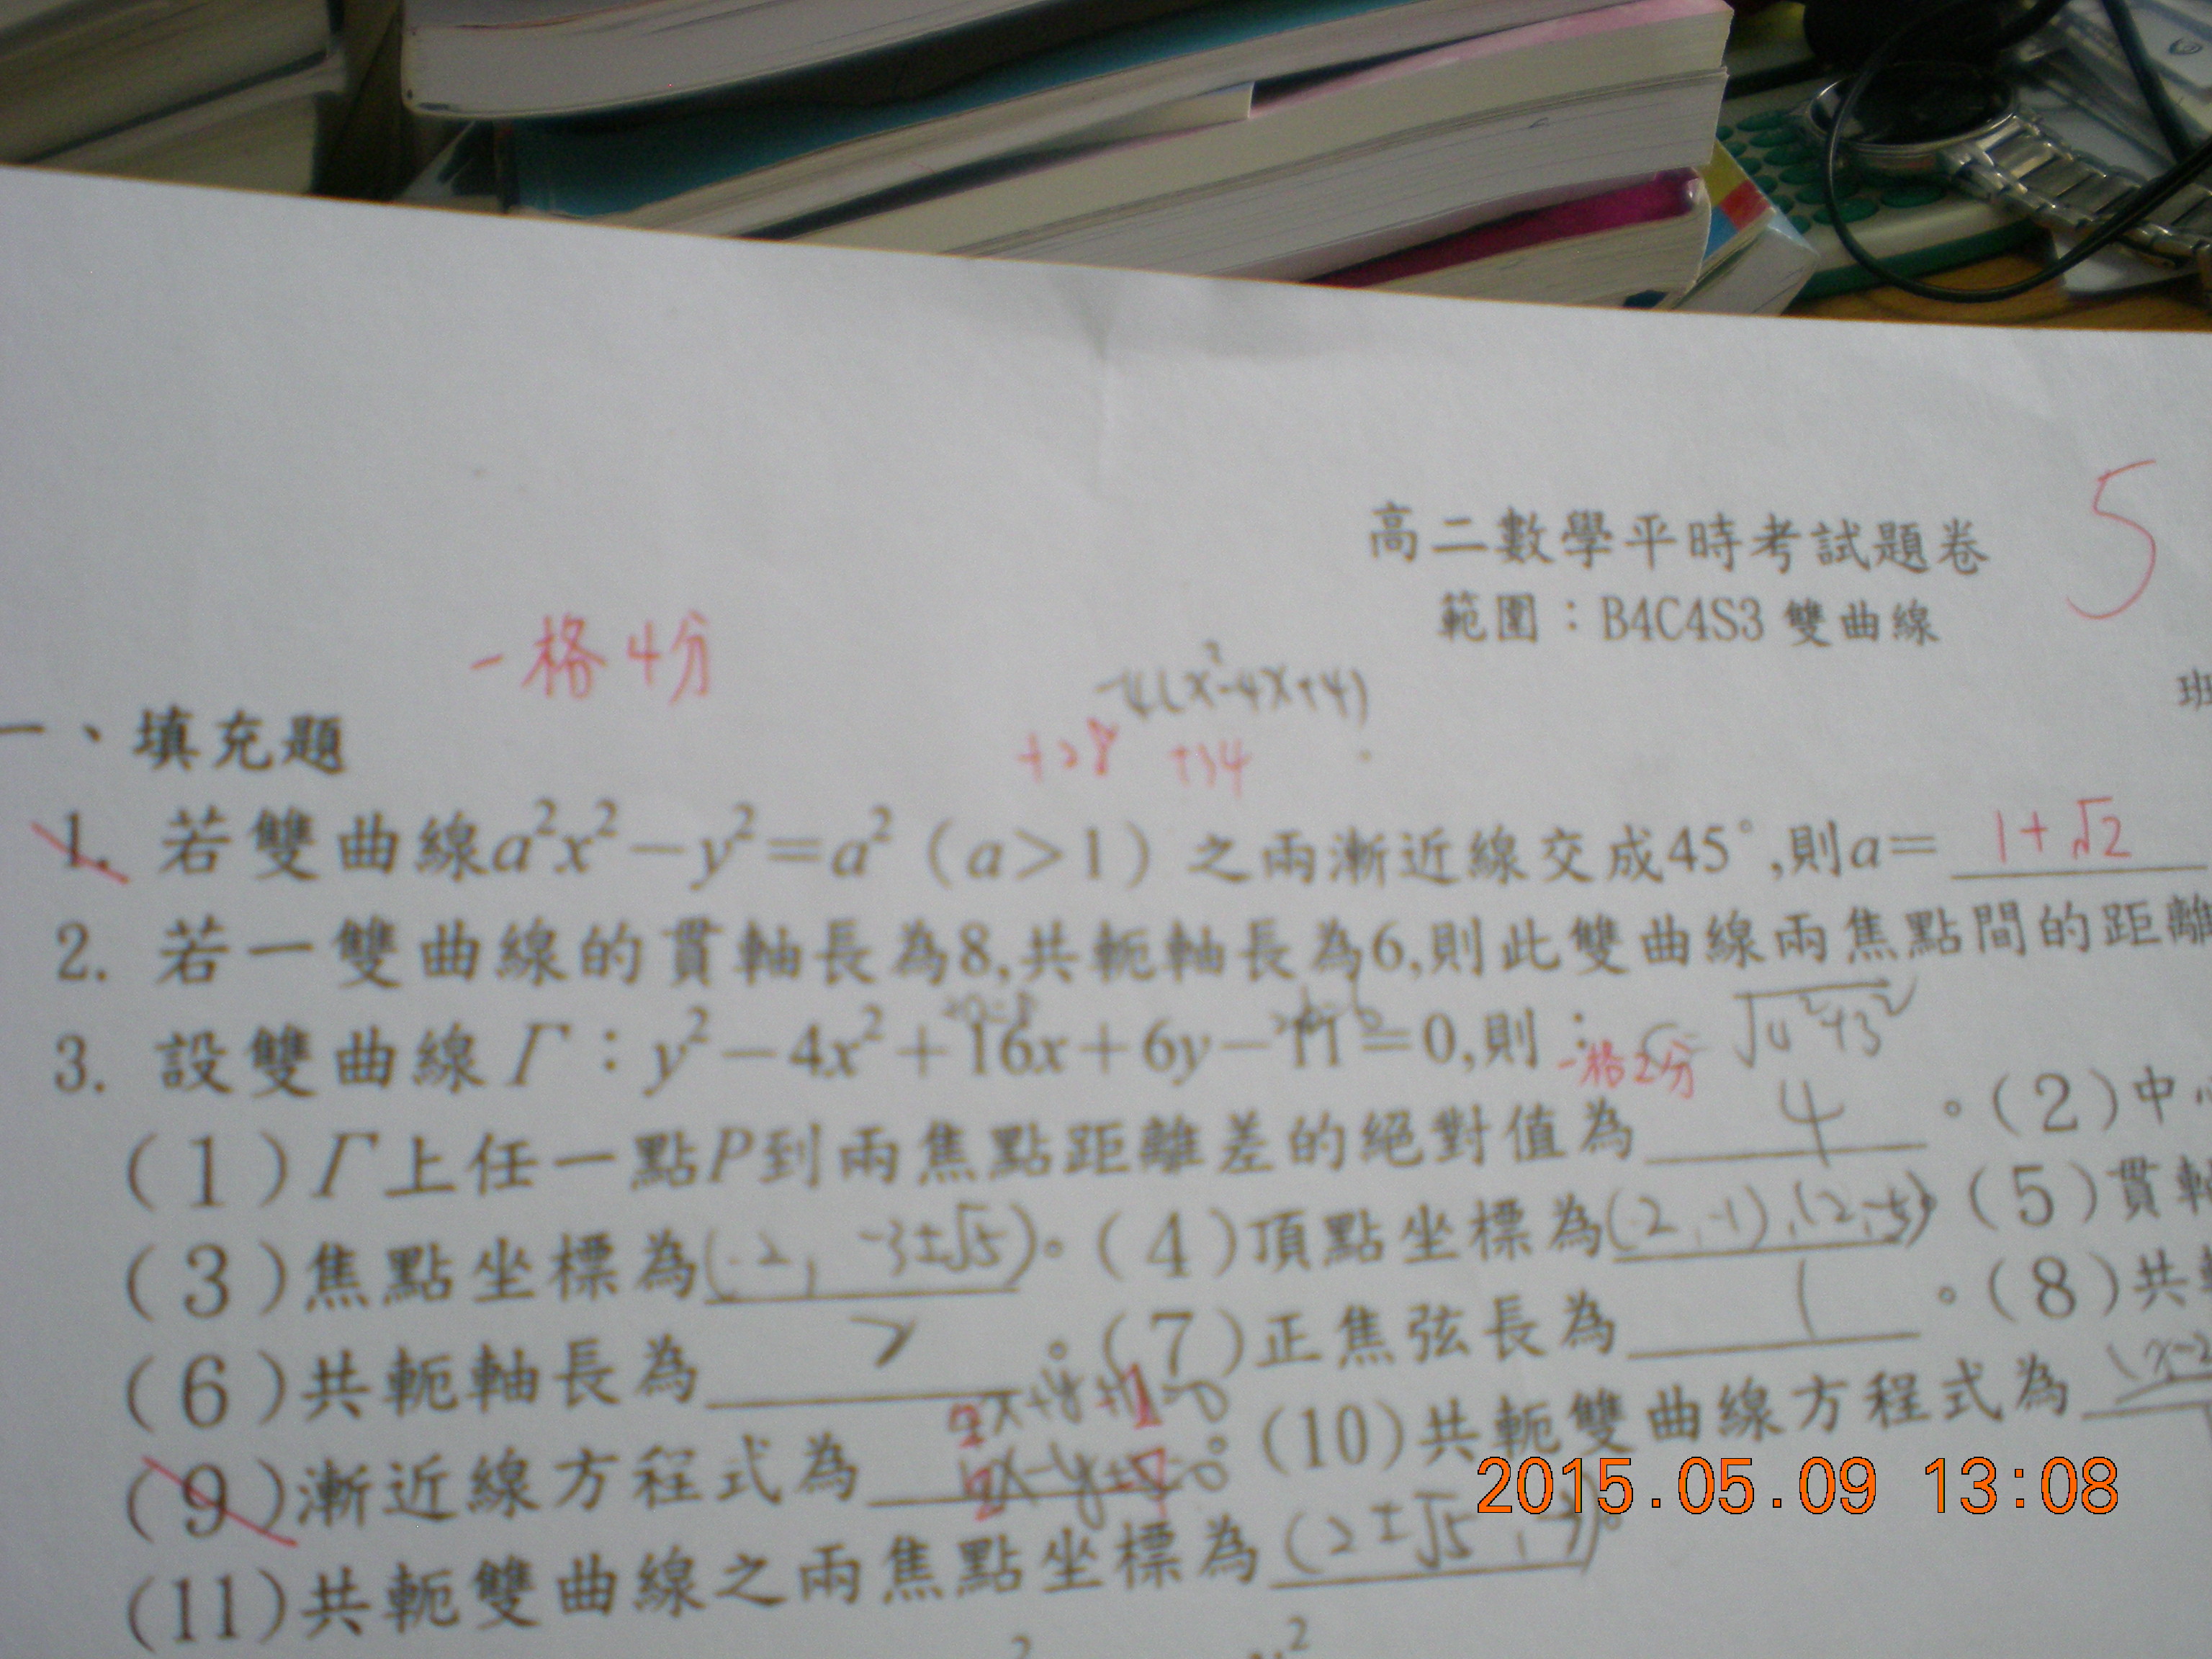 高二數學平時考試題卷
5
範圍：B4C4S3 雙曲線
一格4分
-4(x²-4x+4)
班
+28 +34
一、填充題
1. 若雙曲線a²x²－y²＝a²（a＞1）之兩漸近線交成45°,則a＝ 1+√2
2. 若一雙曲線的貫軸長為8,共軛軸長為6,則此雙曲線兩焦點間的距離
3. 設雙曲線Γ：y²－4x²＋16x＋6y－11＝0,則： √4²+3²
一格2分
(1)Γ上任一點P到兩焦點距離差的絕對值為 4 。(2)中
(3)焦點坐標為(2, -3±√5)。(4)頂點坐標為(2,-1),(2,-5)。(5)貫軸
(6)共軛軸長為 2 。(7)正焦弦長為 1 。(8)共
(9)漸近線方程式為 2x+y+1=0 2x-y-7=0 。(10)共軛雙曲線方程式為 (x-2
(11)共軛雙曲線之兩焦點坐標為 (2±√5, -3)。
2015.05.09 13:08